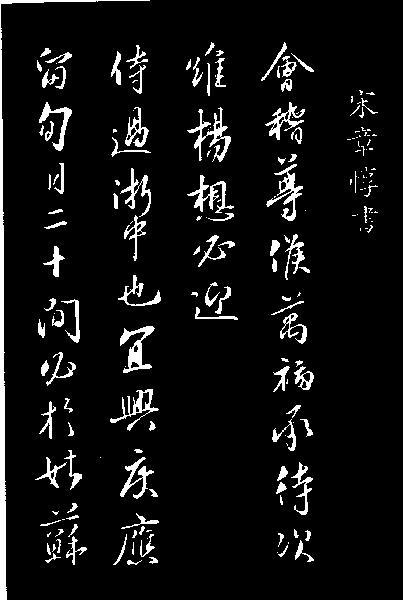 宋章惇書
會稽尊候萬福承待次
維楊想必迎
侍過浙中也宜興庆應
留旬日二十間必於姑蘇